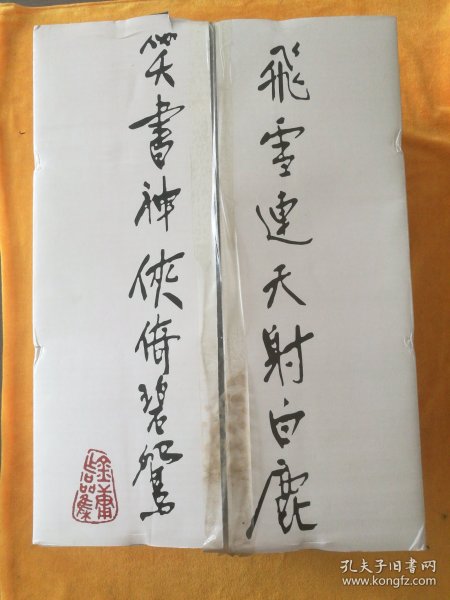 飛雪連天射白鹿
笑書神俠倚碧鴛
金庸作品集
孔夫子旧书网
www.kongfz.com